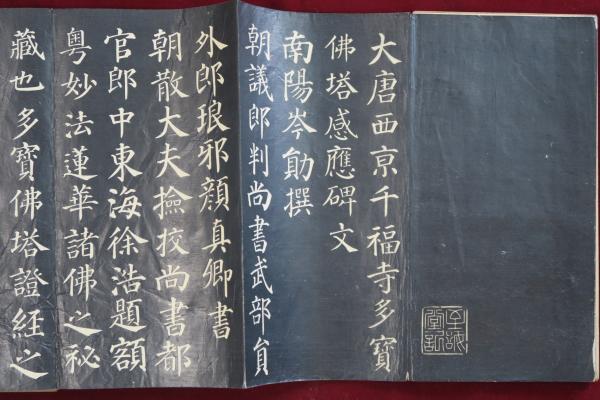 大唐西亰千福寺多寶
佛塔感應碑文
南陽岑勛撰
朝議郎判尚書武部員
外郎琅邪顏真卿書
朝散大夫撿挍尚書都
官郎中東海徐浩題額
粵妙法蓮華諸佛之秘
藏也多寶佛塔證經之